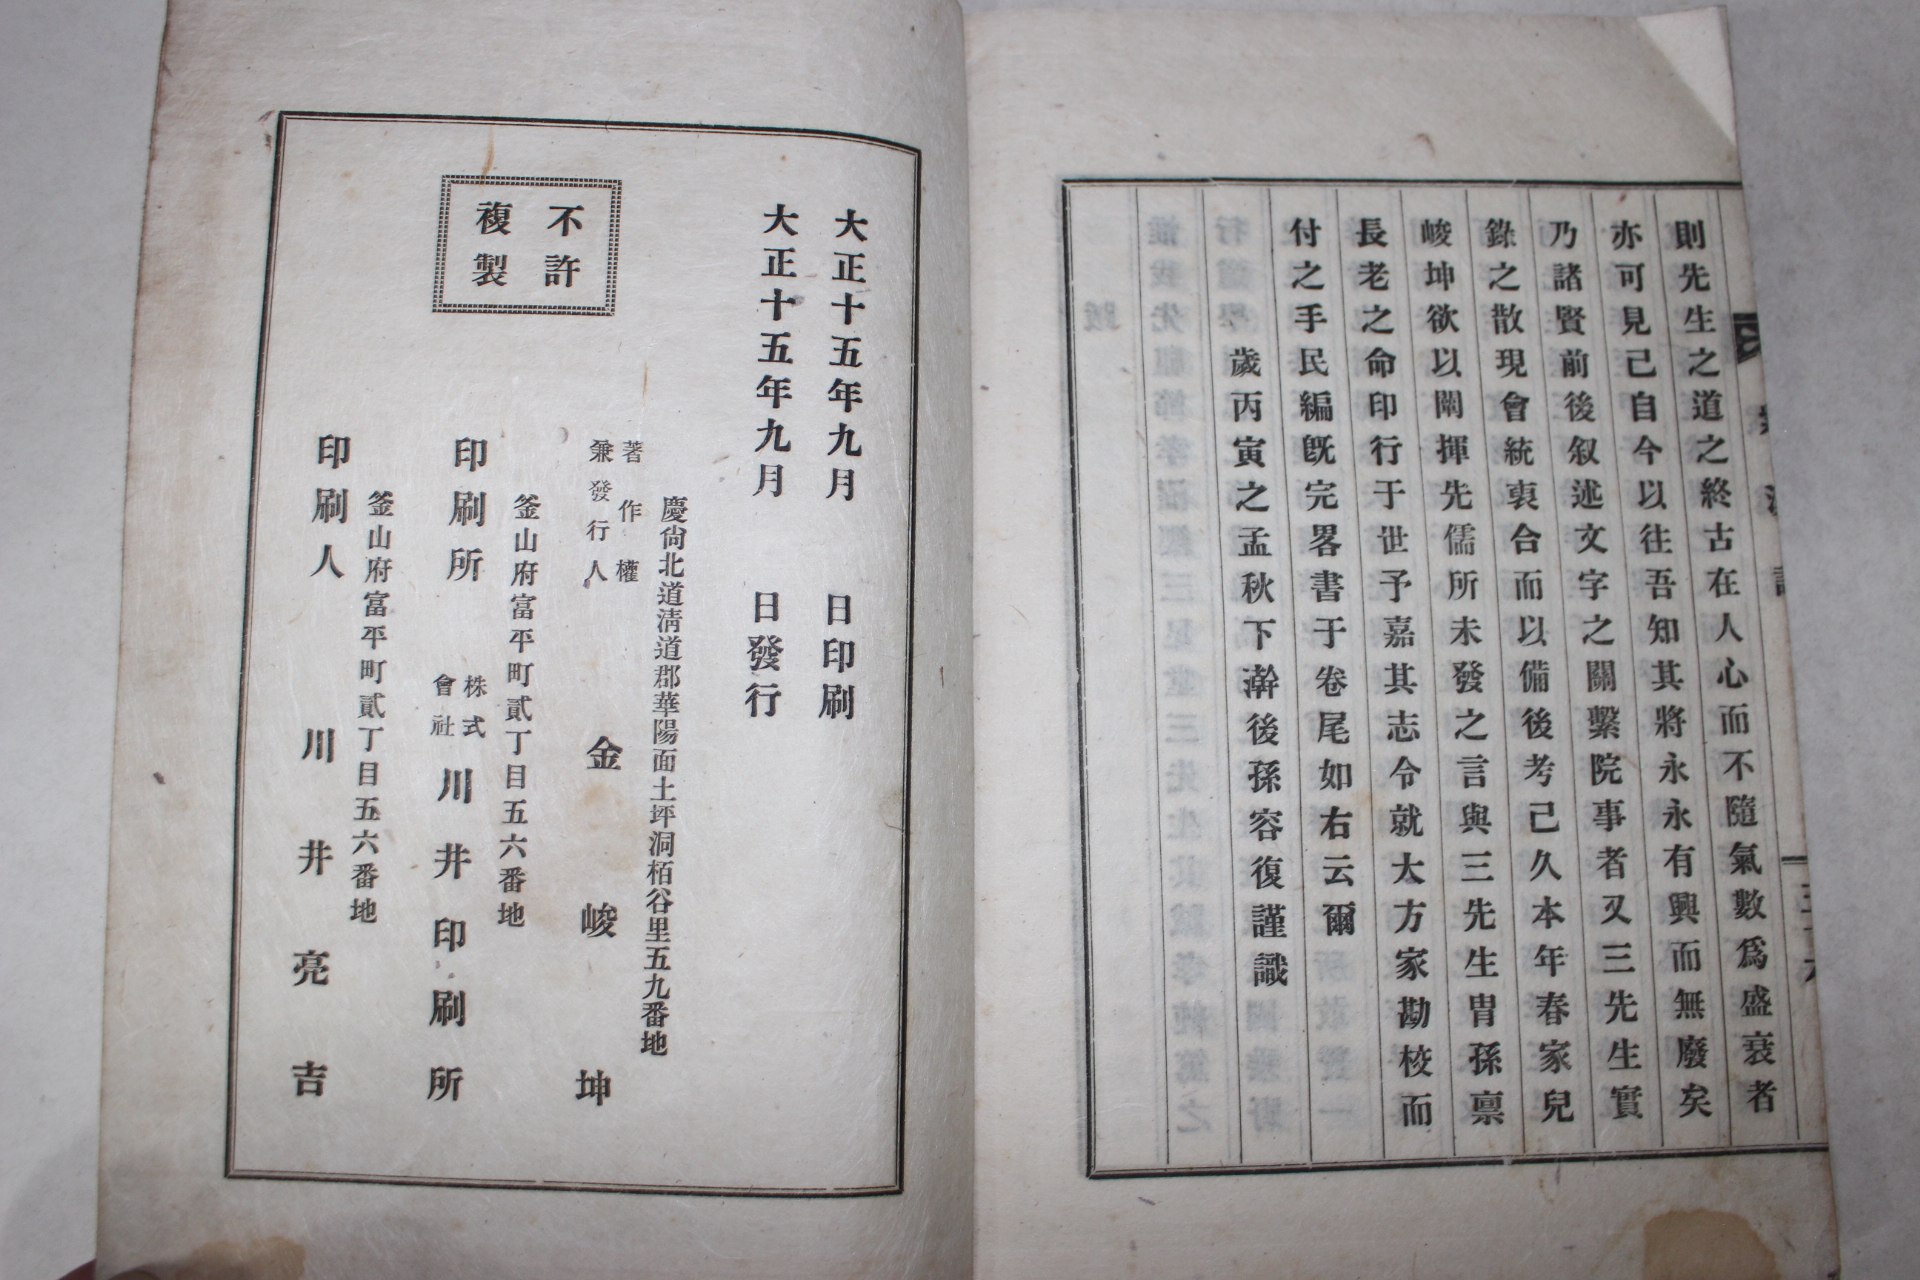 則先生之道之終古在人心而不隨氣數爲盛衰者
亦可見已自今以往吾知其將永永有興而無廢矣
乃諸賢前後叙述文字之關繫院事者又三先生實
錄之散現會統裒合而以備後考己久本年春家兒
峻坤欲以闡揮先儒所未發之言與三先生胄孫禀
長老之命印行于世予嘉其志令就大方家勘校而
付之手民編旣完畧書于卷尾如右云爾
歲丙寅之孟秋下澣後孫容復謹識
大正十五年九月 日印刷
大正十五年九月 日發行
不許
複製
慶尙北道淸道郡華陽面土坪洞栢谷里五九番地
著作權
兼發行人 金峻坤
釜山府富平町貳丁目五六番地
印刷所 株式會社 川井印刷所
釜山府富平町貳丁目五六番地
印刷人 川井亮吉